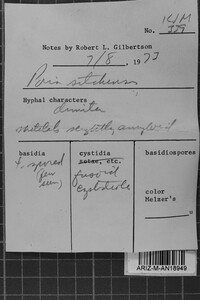 KHM
No. 339
Notes by Robert L. Gilbertson
7/8, 1973
Poria sitchensis
Hyphal characters
dimitic
skeletals slightly amyloid
basidia
4 spored
(per
cystidia
setae, etc.
fusoid
cystidiole
basidiospores
color
Melzer's
ARIZ-M-AN18949